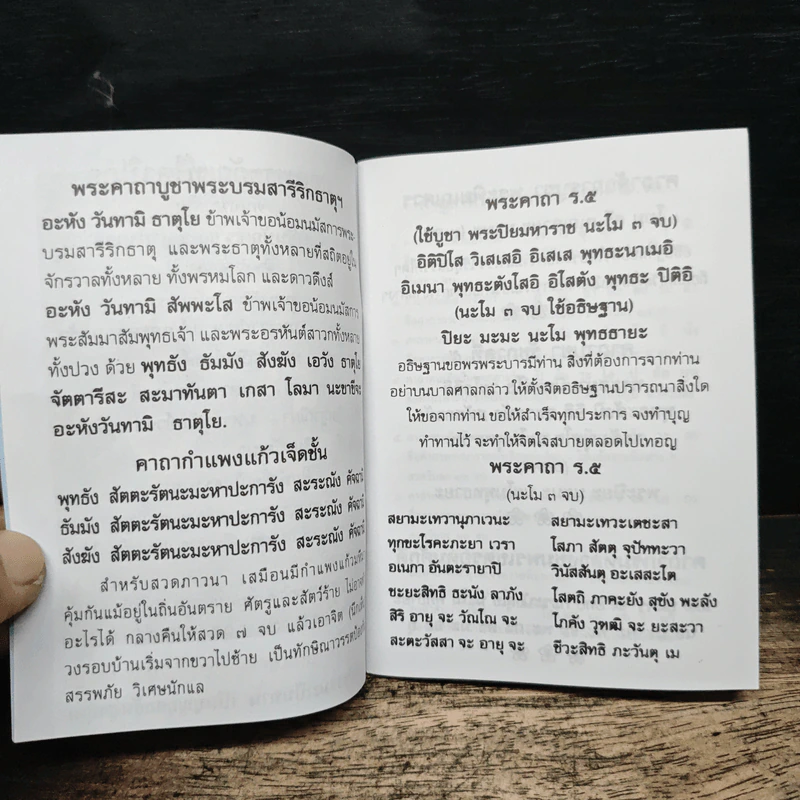 พระคาถาบูชาพระบรมสารีริกธาตุฯ
อะหัง วันทามิ ธาตุโย ข้าพเจ้าขอน้อมนมัสการพระ-
บรมสารีริกธาตุ และพระธาตุทั้งหลายที่สถิตอยู่ใน
จักรวาลทั้งหลาย ทั้งพรหมโลก และดาวดึงส์
อะหัง วันทามิ สัพพะโส ข้าพเจ้าขอน้อมนมัสการ
พระสัมมาสัมพุทธเจ้า และพระอรหันต์สาวกทั้งหลาย
ทั้งปวง ด้วย พุทธัง ธัมมัง สังฆัง เอวัง ธาตุโย
จัตตารีสะ สะมาทันตา เกสา โลมา นะขาปิจะ
อะหังวันทามิ ธาตุโย.
คาถากำแพงแก้วเจ็ดชั้น
พุทธัง สัตตะรัตนะมะหาปะการัง สะระณัง คัจฉามิ
ธัมมัง สัตตะรัตนะมะหาปะการัง สะระณัง คัจฉามิ
สังฆัง สัตตะรัตนะมะหาปะการัง สะระณัง คัจฉามิ
สำหรับสวดภาวนา เสมือนมีกำแพงแก้วมา
คุ้มกันแม้อยู่ในถิ่นอันตราย ศัตรูและสัตว์ร้าย
อะไรได้ กลางคืนให้สวด ๗ จบ แล้วเอาจิต
วงรอบบ้านเริ่มจากขวาไปซ้าย เป็นทักษิณาวรรต
สรรพภัย วิเศษนักแล
พระคาถา ร.๕
(ใช้บูชา พระปิยมหาราช นะโม ๓ จบ)
อิติปิโส วิเสเสอิ อิเสเส พุทธะนาเมอิ
อิเมนา พุทธะตังโสอิ อิโสตัง พุทธะ ปิติอิ
(นะโม ๓ จบ ใช้อธิษฐาน)
ปิยะ มะมะ นะโม พุทธธายะ
อธิษฐานขอพรพระบารมีท่าน สิ่งที่ต้องการจากท่าน
อย่าบนบาลศาลกล่าว ให้ตั้งจิตอธิษฐานปรารถนาสิ่งใด
ให้ขอจากท่าน ขอให้สำเร็จทุกประการ จงทำบุญ
ทำทานไว้ จะทำให้จิตใจสบายตลอดไปเทอญ
พระคาถา ร.๕
(นะโม ๓ จบ)
สยามะเทวานุภาเวนะ สยามะเทวะเตชะสา
ทุกขะโรคะภะยา เวรา โสภา สัตตุ จุปัททะวา
อเนกา อันตะรายาปิ วินัสสันตุ อะเสสะโต
ชะยะสิทธิ ธะนัง ลาภัง โสตถิ ภาคะยัง สุขัง พะลัง
สิริ อายุ จะ วัณโณ จะ โภคัง วุฑฒิ จะ ยะสะวา
สะตะวัสสา จะ อายุ จะ ชีวะสิทธิ ภะวันตุ เม